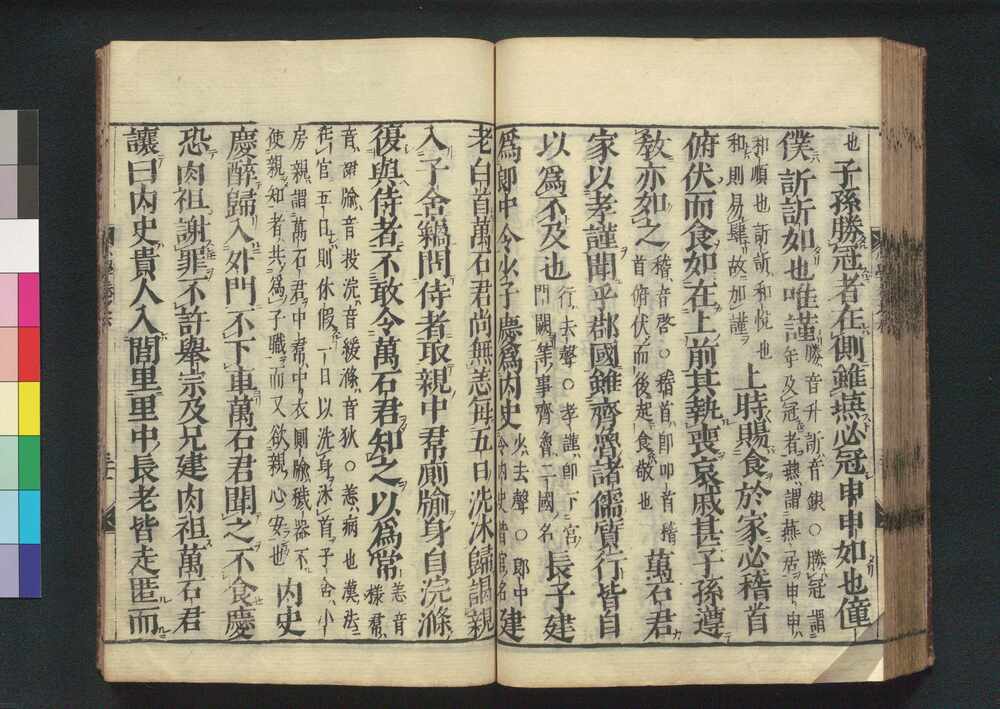 也子孫勝冠者在側雖燕必冠申申如也僮
僕訢訢如也唯謹勝音升訢音銀○勝冠謂
年及冠者燕謂燕居申申
和順也訢訢和悅也
和則易肆故加謹上時賜食於家必稽首
俯伏而食如在上前其執喪哀戚甚子孫遵
敎亦如之稽音啓○稽首卽叩首稽
首俯伏而後起食敬也萬石君
家以孝謹聞乎郡國雖齊魯諸儒質行皆自
以爲不及也行去聲○孝謹卽下宮
門闕等事齊魯二國名長子建
爲郎中令少子慶爲內史少去聲○郎中
令內史皆官名建
老白首萬石君尚無恙每五日洗沐歸謁親
入子舍竊問侍者取親中帬厠牏身自浣滌
復與侍者不敢令萬石君知之以爲常恙音
樣帬
音羣牏音投浣音緩滌音狄○恙病也漢法
在官五日則休假一日以洗身沐首子舍小
房親謂萬石君中帬中衣厠牏穢器不
使親知者共爲子職而又欲親心安也內史
慶醉歸入外門不下車萬石君聞之不食慶
恐肉袒謝罪不許舉宗及兄建肉袒萬石君
讓曰內史貴人入閭里里中長老皆走匿而